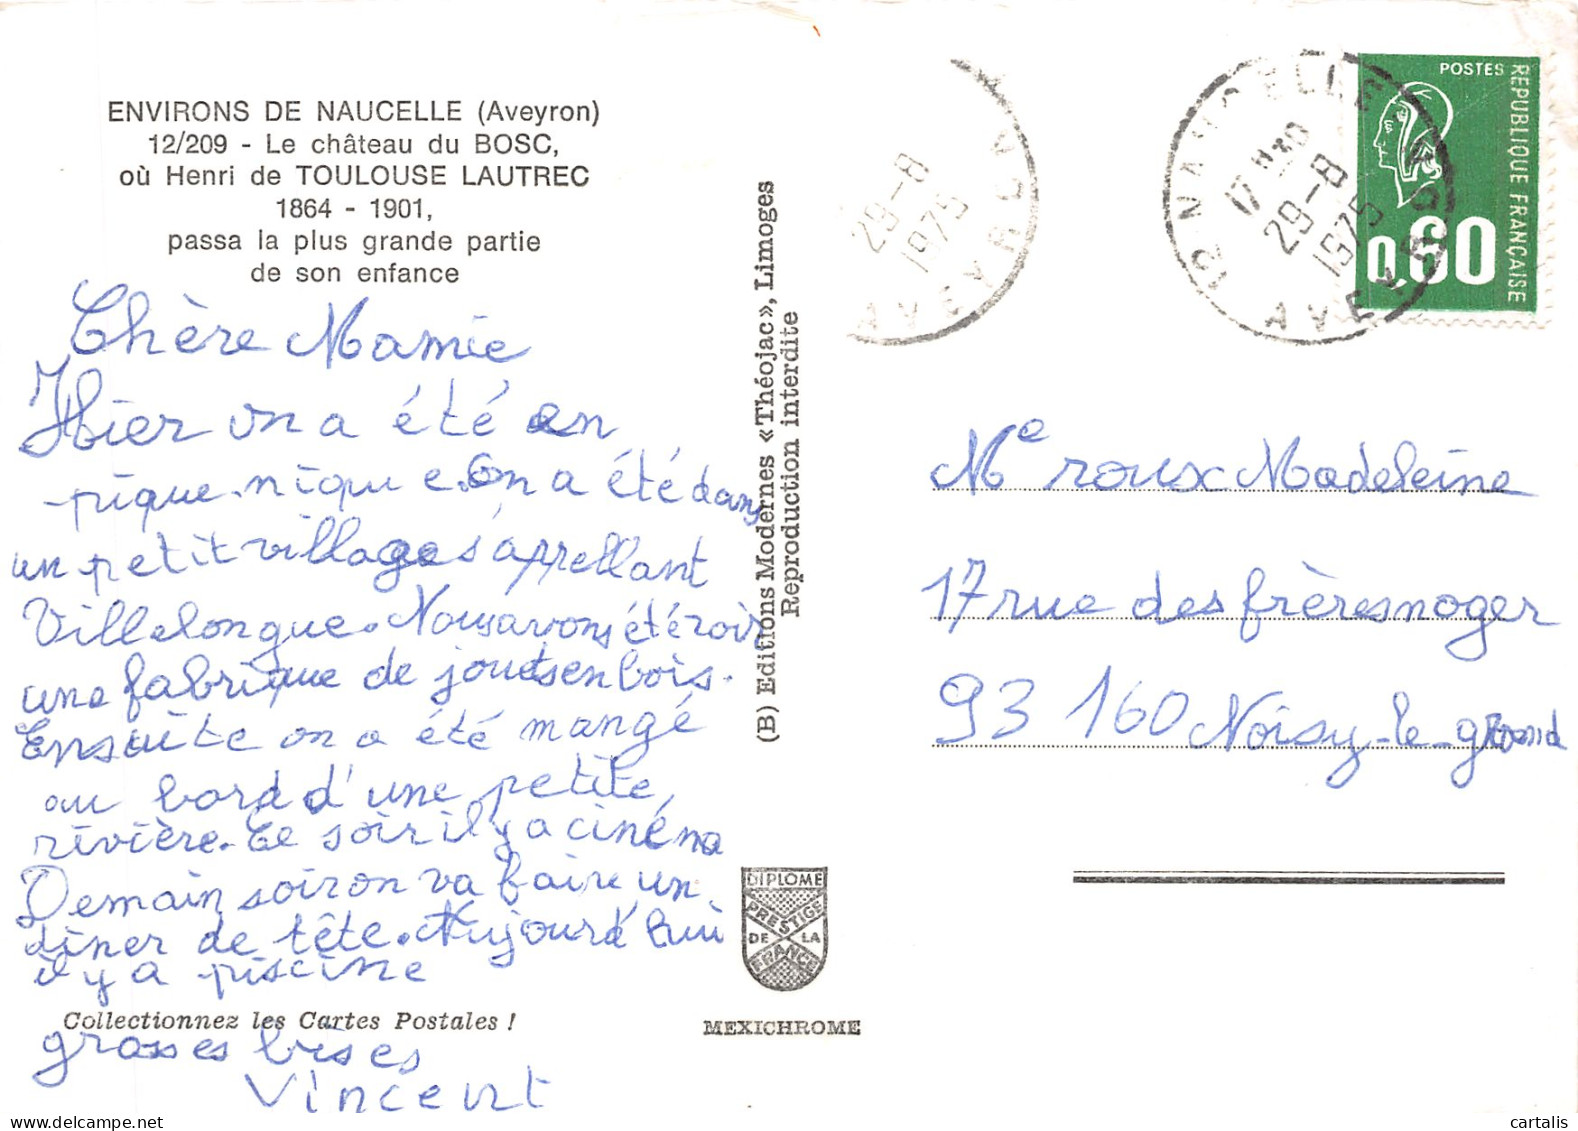 ENVIRONS DE NAUCELLE (Aveyron)
12/209 - Le château du BOSC,
où Henri de TOULOUSE LAUTREC
1864 - 1901,
passa la plus grande partie
de son enfance
Chère Mamie
Hier on a été en
pique.nique. On a été dans
un petit village s'appellant
Villelongue. Nous avons été voir
une fabrique de jouets en bois.
Ensuite on a été mangé
au bord d'une petite
rivière. Ce soir il y a cinéma
Demain soir on va faire un
dîner de tête. Aujourd'hui
il y a piscine
Collectionnez les Cartes Postales !
grosses bises
Vincent
(B) Editions Modernes «Théojac», Limoges
Reproduction interdite
DIPLOME
PRESTIGE
DE LA
FRANCE
MEXICHROME
29-8
1975
AVEYRON
12 NAUCELLE
17H30
29-8
1975
AVEYRON
POSTES
REPUBLIQUE FRANÇAISE
0,60
Me roux Madeleine
17 rue des frères noger
93 160 Noisy-le-grand
cartalis